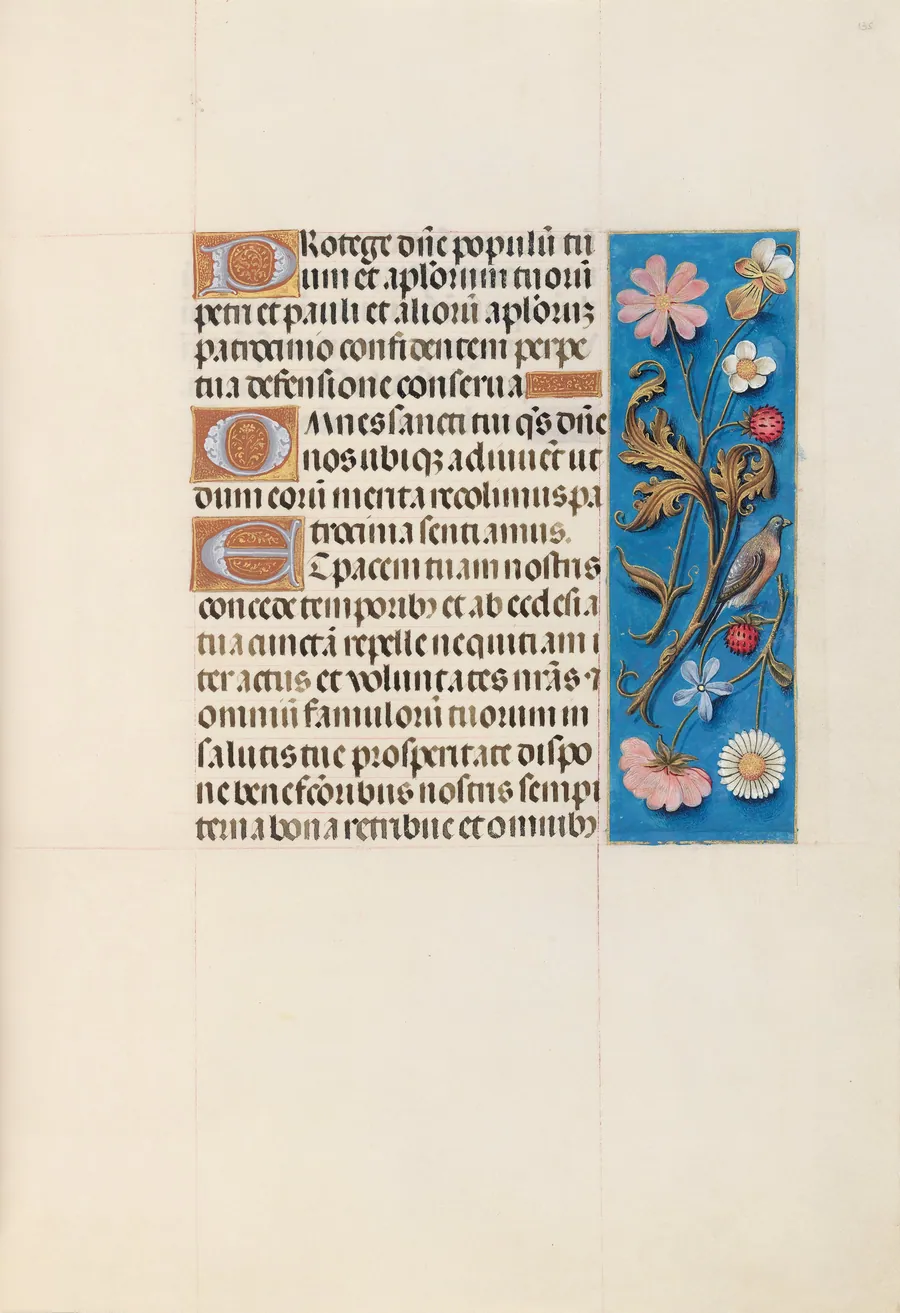 135
PRotege dn̄e populū tu
um et apl̄orum tuorū
petri et pauli et aliorū apl̄oruꝫ
patrocinio confidentem perpe
tua defensione conserua
OMnes sancti tui q̄s dn̄e
nos ubiqꝫ adiuuēt ut
dum eorū merita recolimus pa
trocinia sentiamus.
Et pacem tuam nostris
concede temporibꝫ et ab ecclesia
tua cunctā repelle nequitiam i
ter actus et voluntates nr̄as ⁊
omniū famulorū tuorum in
salutis tue prosperitate dispo
ne benefc̄oribus nostris sempi
terna bona retribue et omnibꝫ